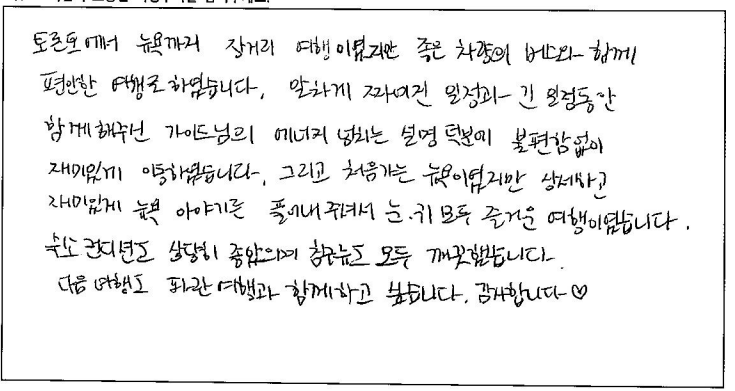 토론토에서 뉴욕까지 장거리 여행이였지만 좋은 차량의 버스와 함께
편안한 여행을 하였습니다. 알차게 짜여진 일정과 긴 일정동안
함께해주신 가이드님의 에너지 넘치는 설명 덕분에 불편함없이
재미있게 이동하였습니다. 그리고 처음가는 뉴욕이였지만 상세하고
재미있게 뉴욕 이야기를 풀어내 주셔서 눈.귀 모두 즐거운 여행이였습니다.
숙소 컨디션도 상당히 좋았으며 침구류도 모두 깨끗했습니다.
다음 여행도 파란여행과 함께하고 싶습니다. 감사합니다♡